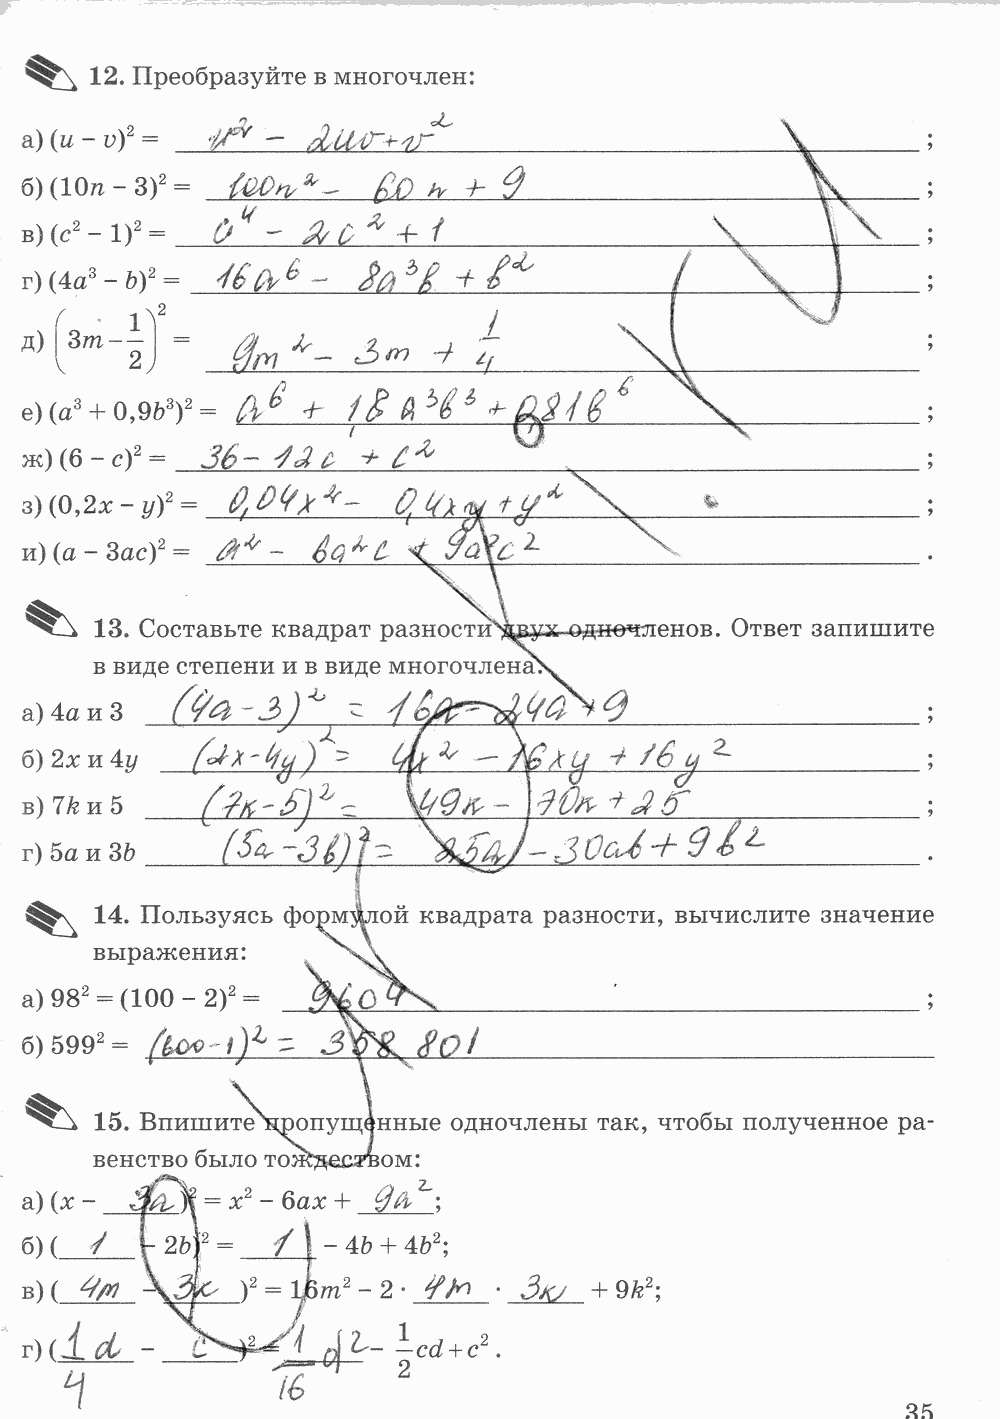 12. Преобразуйте в многочлен:
а) (u − v)² = u² − 2uv + v² ;
б) (10n − 3)² = 100n² − 60n + 9 ;
в) (c² − 1)² = c⁴ − 2c² + 1 ;
г) (4a³ − b)² = 16a⁶ − 8a³b + b² ;
д) (3m − 1/2)² = 9m² − 3m + 1/4 ;
е) (a³ + 0,9b³)² = a⁶ + 1,8a³b³ + 0,81b⁶ ;
ж) (6 − c)² = 36 − 12c + c² ;
з) (0,2x − y)² = 0,04x² − 0,4xy + y² ;
и) (a − 3ac)² = a² − 6a²c + 9a²c² .
13. Составьте квадрат разности двух одночленов. Ответ запишите
в виде степени и в виде многочлена.
а) 4a и 3 (4a − 3)² = 16a − 24a + 9 ;
б) 2x и 4y (2x − 4y)² = 4x² − 16xy + 16y² ;
в) 7k и 5 (7k − 5)² = 49k − 70k + 25 ;
г) 5a и 3b (5a − 3b)² = 25a − 30ab + 9b² .
14. Пользуясь формулой квадрата разности, вычислите значение
выражения:
а) 98² = (100 − 2)² = 9604 ;
б) 599² = (600 − 1)² = 358 801
15. Впишите пропущенные одночлены так, чтобы полученное ра-
венство было тождеством:
а) (x − 3a)² = x² − 6ax + 9a²;
б) (1 − 2b)² = 1 − 4b + 4b²;
в) (4m − 3k)² = 16m² − 2 · 4m · 3k + 9k²;
г) (1/4 d − c)² = 1/16 d² − 1/2 cd + c² .
35